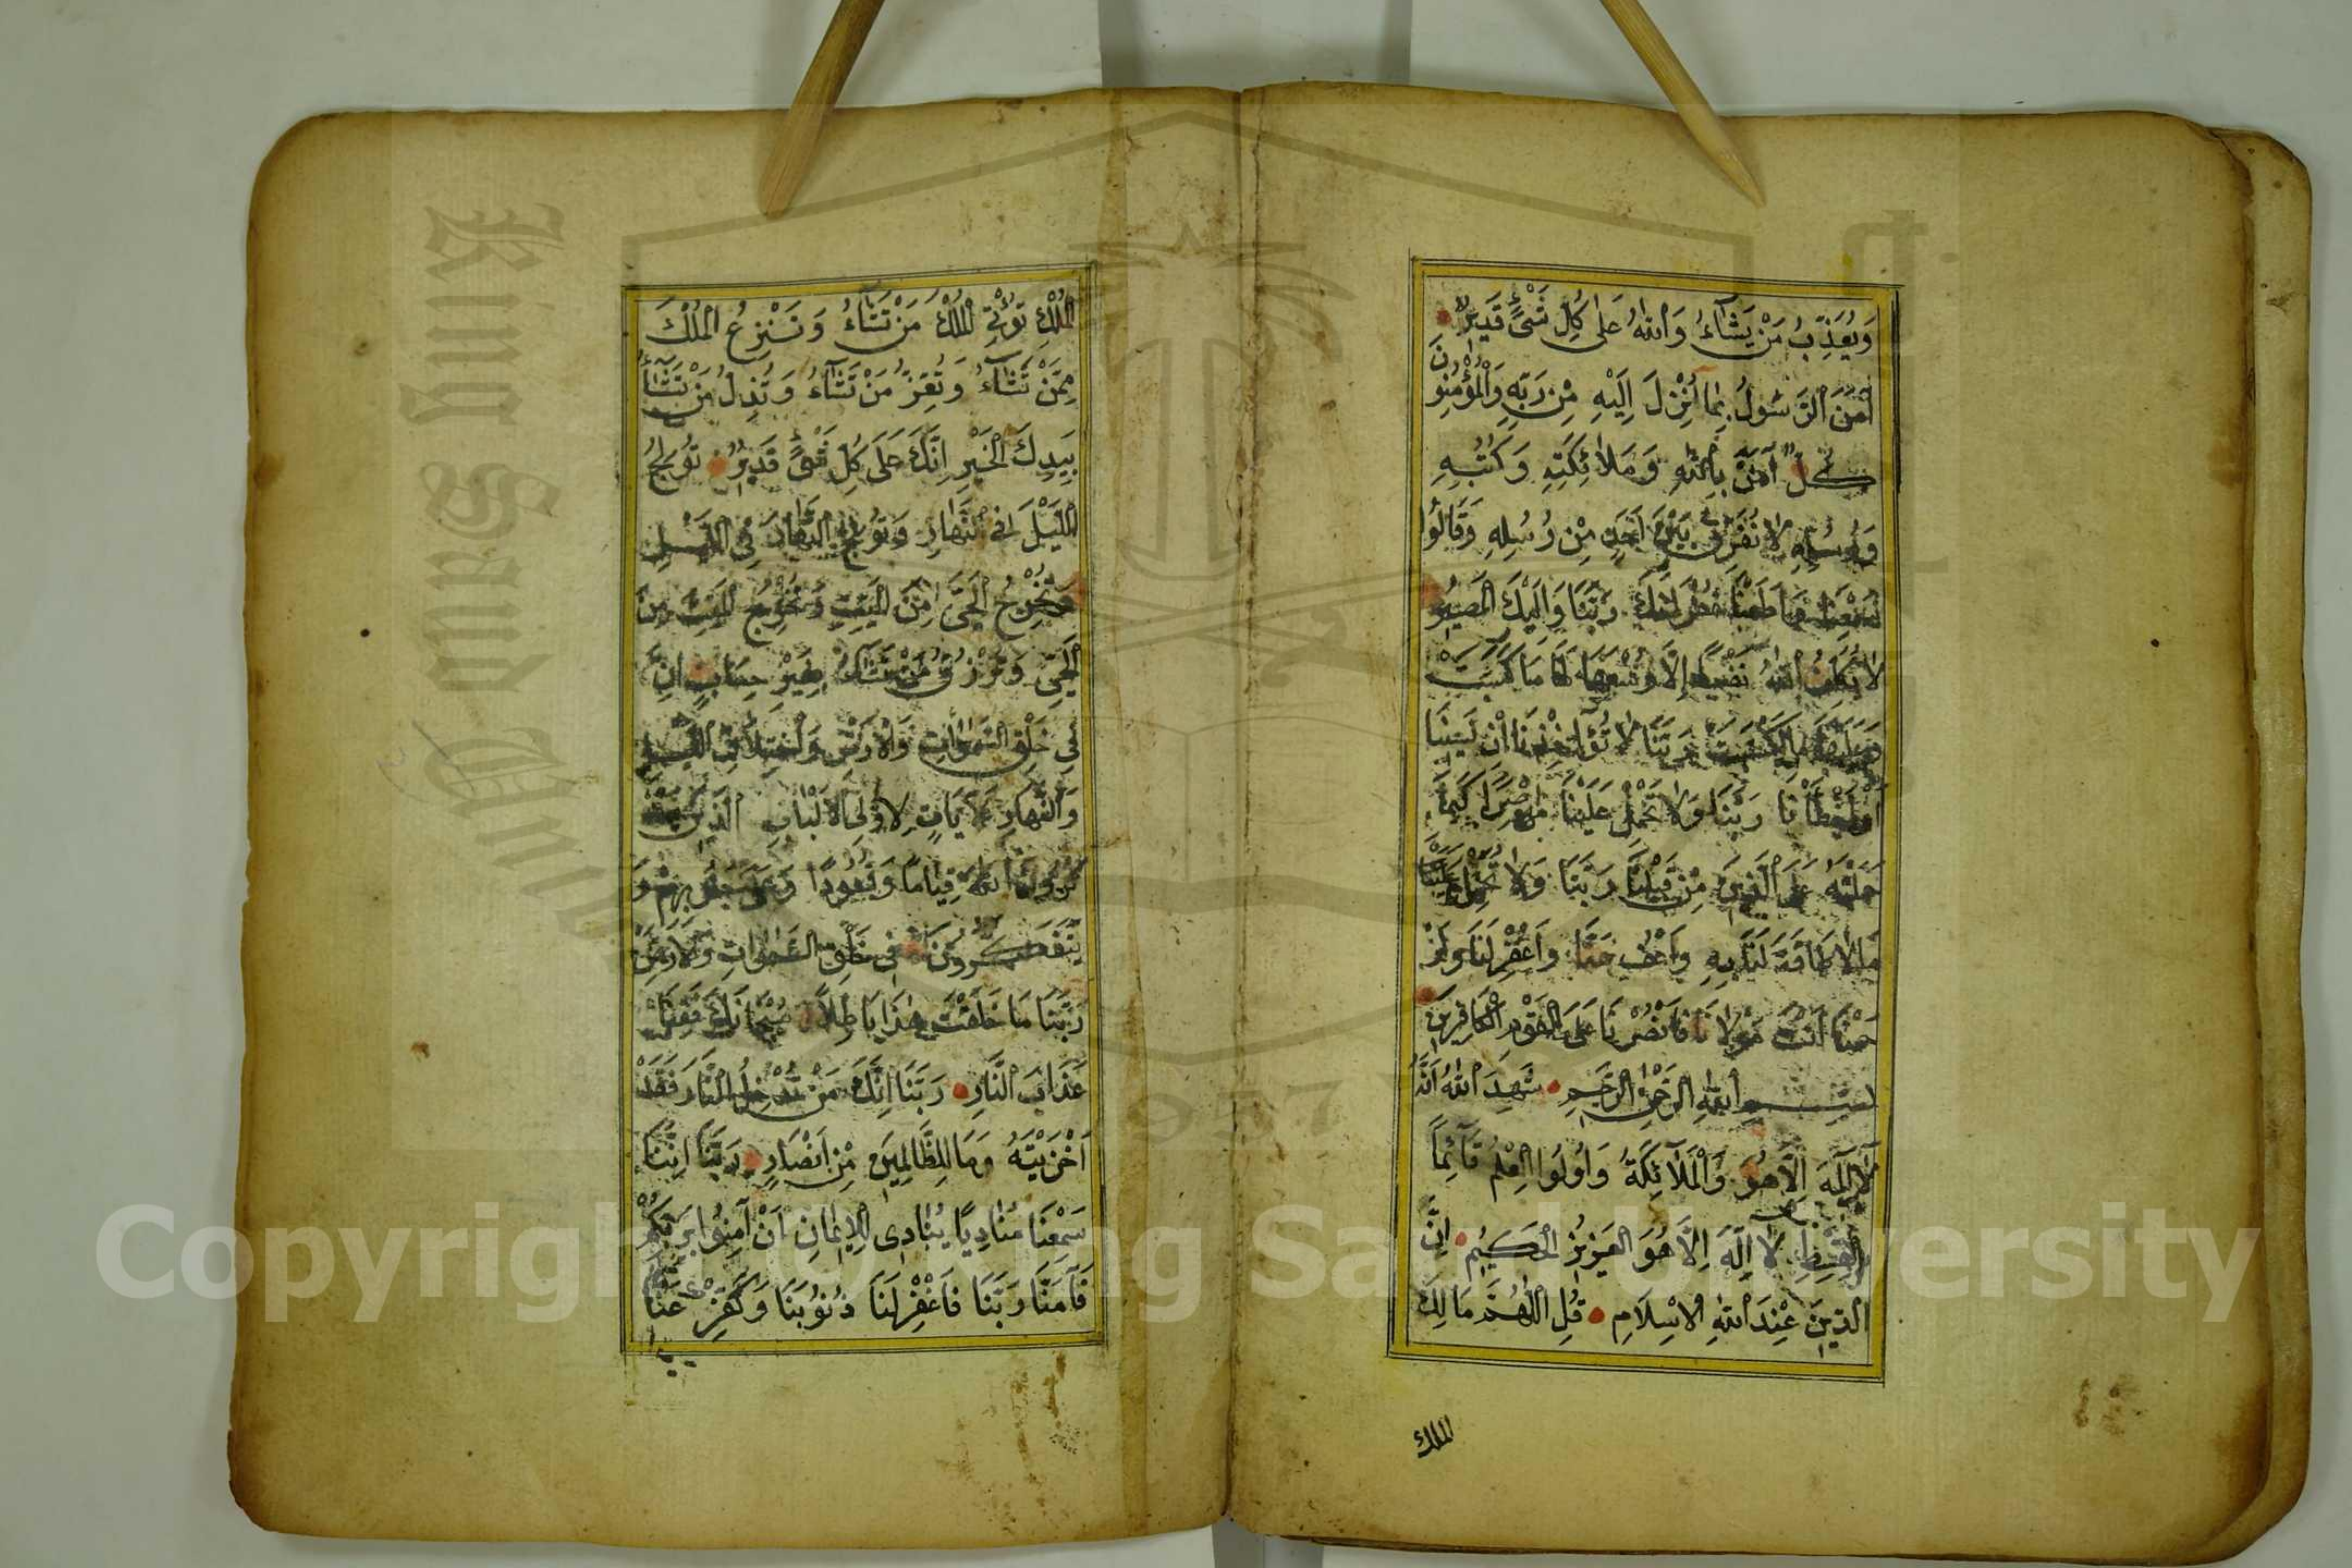 وَيُعَذِّبُ مَنْ يَشَاءُ وَاللهُ عَلَى كُلِّ شَيْءٍ قَدِيرٌ
آمَنَ الرَّسُولُ بِمَا أُنْزِلَ إِلَيْهِ مِنْ رَبِّهِ وَالْمُؤْمِنُونَ
كُلٌّ آمَنَ بِاللهِ وَمَلَائِكَتِهِ وَكُتُبِهِ
وَرُسُلِهِ لَا نُفَرِّقُ بَيْنَ أَحَدٍ مِنْ رُسُلِهِ وَقَالُوا
سَمِعْنَا وَأَطَعْنَا غُفْرَانَكَ رَبَّنَا وَإِلَيْكَ الْمَصِيرُ
لَا يُكَلِّفُ اللهُ نَفْسًا إِلَّا وُسْعَهَا لَهَا مَا كَسَبَتْ
وَعَلَيْهَا مَا اكْتَسَبَتْ رَبَّنَا لَا تُؤَاخِذْنَا إِنْ نَسِينَا
أَوْ أَخْطَأْنَا رَبَّنَا وَلَا تَحْمِلْ عَلَيْنَا إِصْرًا كَمَا
حَمَلْتَهُ عَلَى الَّذِينَ مِنْ قَبْلِنَا رَبَّنَا وَلَا تُحَمِّلْنَا
مَا لَا طَاقَةَ لَنَا بِهِ وَاعْفُ عَنَّا وَاغْفِرْ لَنَا وَارْ
حَمْنَا أَنْتَ مَوْلَانَا فَانْصُرْنَا عَلَى الْقَوْمِ الْكَافِرِينَ
بِسْمِ اللهِ الرَّحْمٰنِ الرَّحِيمِ شَهِدَ اللهُ أَنَّهُ
لَا إِلَهَ إِلَّا هُوَ وَالْمَلَائِكَةُ وَأُولُوا الْعِلْمِ قَائِمًا
بِالْقِسْطِ لَا إِلَهَ إِلَّا هُوَ الْعَزِيزُ الْحَكِيمُ إِنَّ
الدِّينَ عِنْدَ اللهِ الْإِسْلَامِ قُلِ اللَّهُمَّ مَالِكَ
الملك
الْمُلْكِ تُؤْتِي الْمُلْكَ مَنْ تَشَاءُ وَتَنْزِعُ الْمُلْكَ
مِمَّنْ تَشَاءُ وَتُعِزُّ مَنْ تَشَاءُ وَتُذِلُّ مَنْ تَشَاءُ
بِيَدِكَ الْخَيْرِ إِنَّكَ عَلَى كُلِّ شَيْءٍ قَدِيرٌ تُولِجُ
اللَّيْلَ فِي النَّهَارِ وَتُولِجُ النَّهَارَ فِي اللَّيْلِ
وَتُخْرِجُ الْحَيَّ مِنَ الْمَيِّتِ وَتُخْرِجُ الْمَيِّتَ مِنَ
الْحَيِّ وَتَرْزُقُ مَنْ تَشَاءُ بِغَيْرِ حِسَابٍ إِنَّ
فِي خَلْقِ السَّمٰوَاتِ وَالْأَرْضِ وَاخْتِلَافِ اللَّيْلِ
وَالنَّهَارِ لَآيَاتٍ لِأُولِي الْأَلْبَابِ الَّذِينَ يَذْ
كُرُونَ اللهَ قِيَامًا وَقُعُودًا وَعَلَى جُنُوبِهِمْ وَ
يَتَفَكَّرُونَ فِي خَلْقِ السَّمٰوَاتِ وَالْأَرْضِ
رَبَّنَا مَا خَلَقْتَ هٰذَا بَاطِلًا سُبْحَانَكَ فَقِنَا
عَذَابَ النَّارِ رَبَّنَا إِنَّكَ مَنْ تُدْخِلِ النَّارَ فَقَدْ
أَخْزَيْتَهُ وَمَا لِلظَّالِمِينَ مِنْ أَنْصَارٍ رَبَّنَا إِنَّنَا
سَمِعْنَا مُنَادِيًا يُنَادِي لِلْإِيمَانِ أَنْ آمِنُوا بِرَبِّكُمْ
فَآمَنَّا رَبَّنَا فَاغْفِرْ لَنَا ذُنُوبَنَا وَكَفِّرْ عَنَّا
Copyright © King Saud University